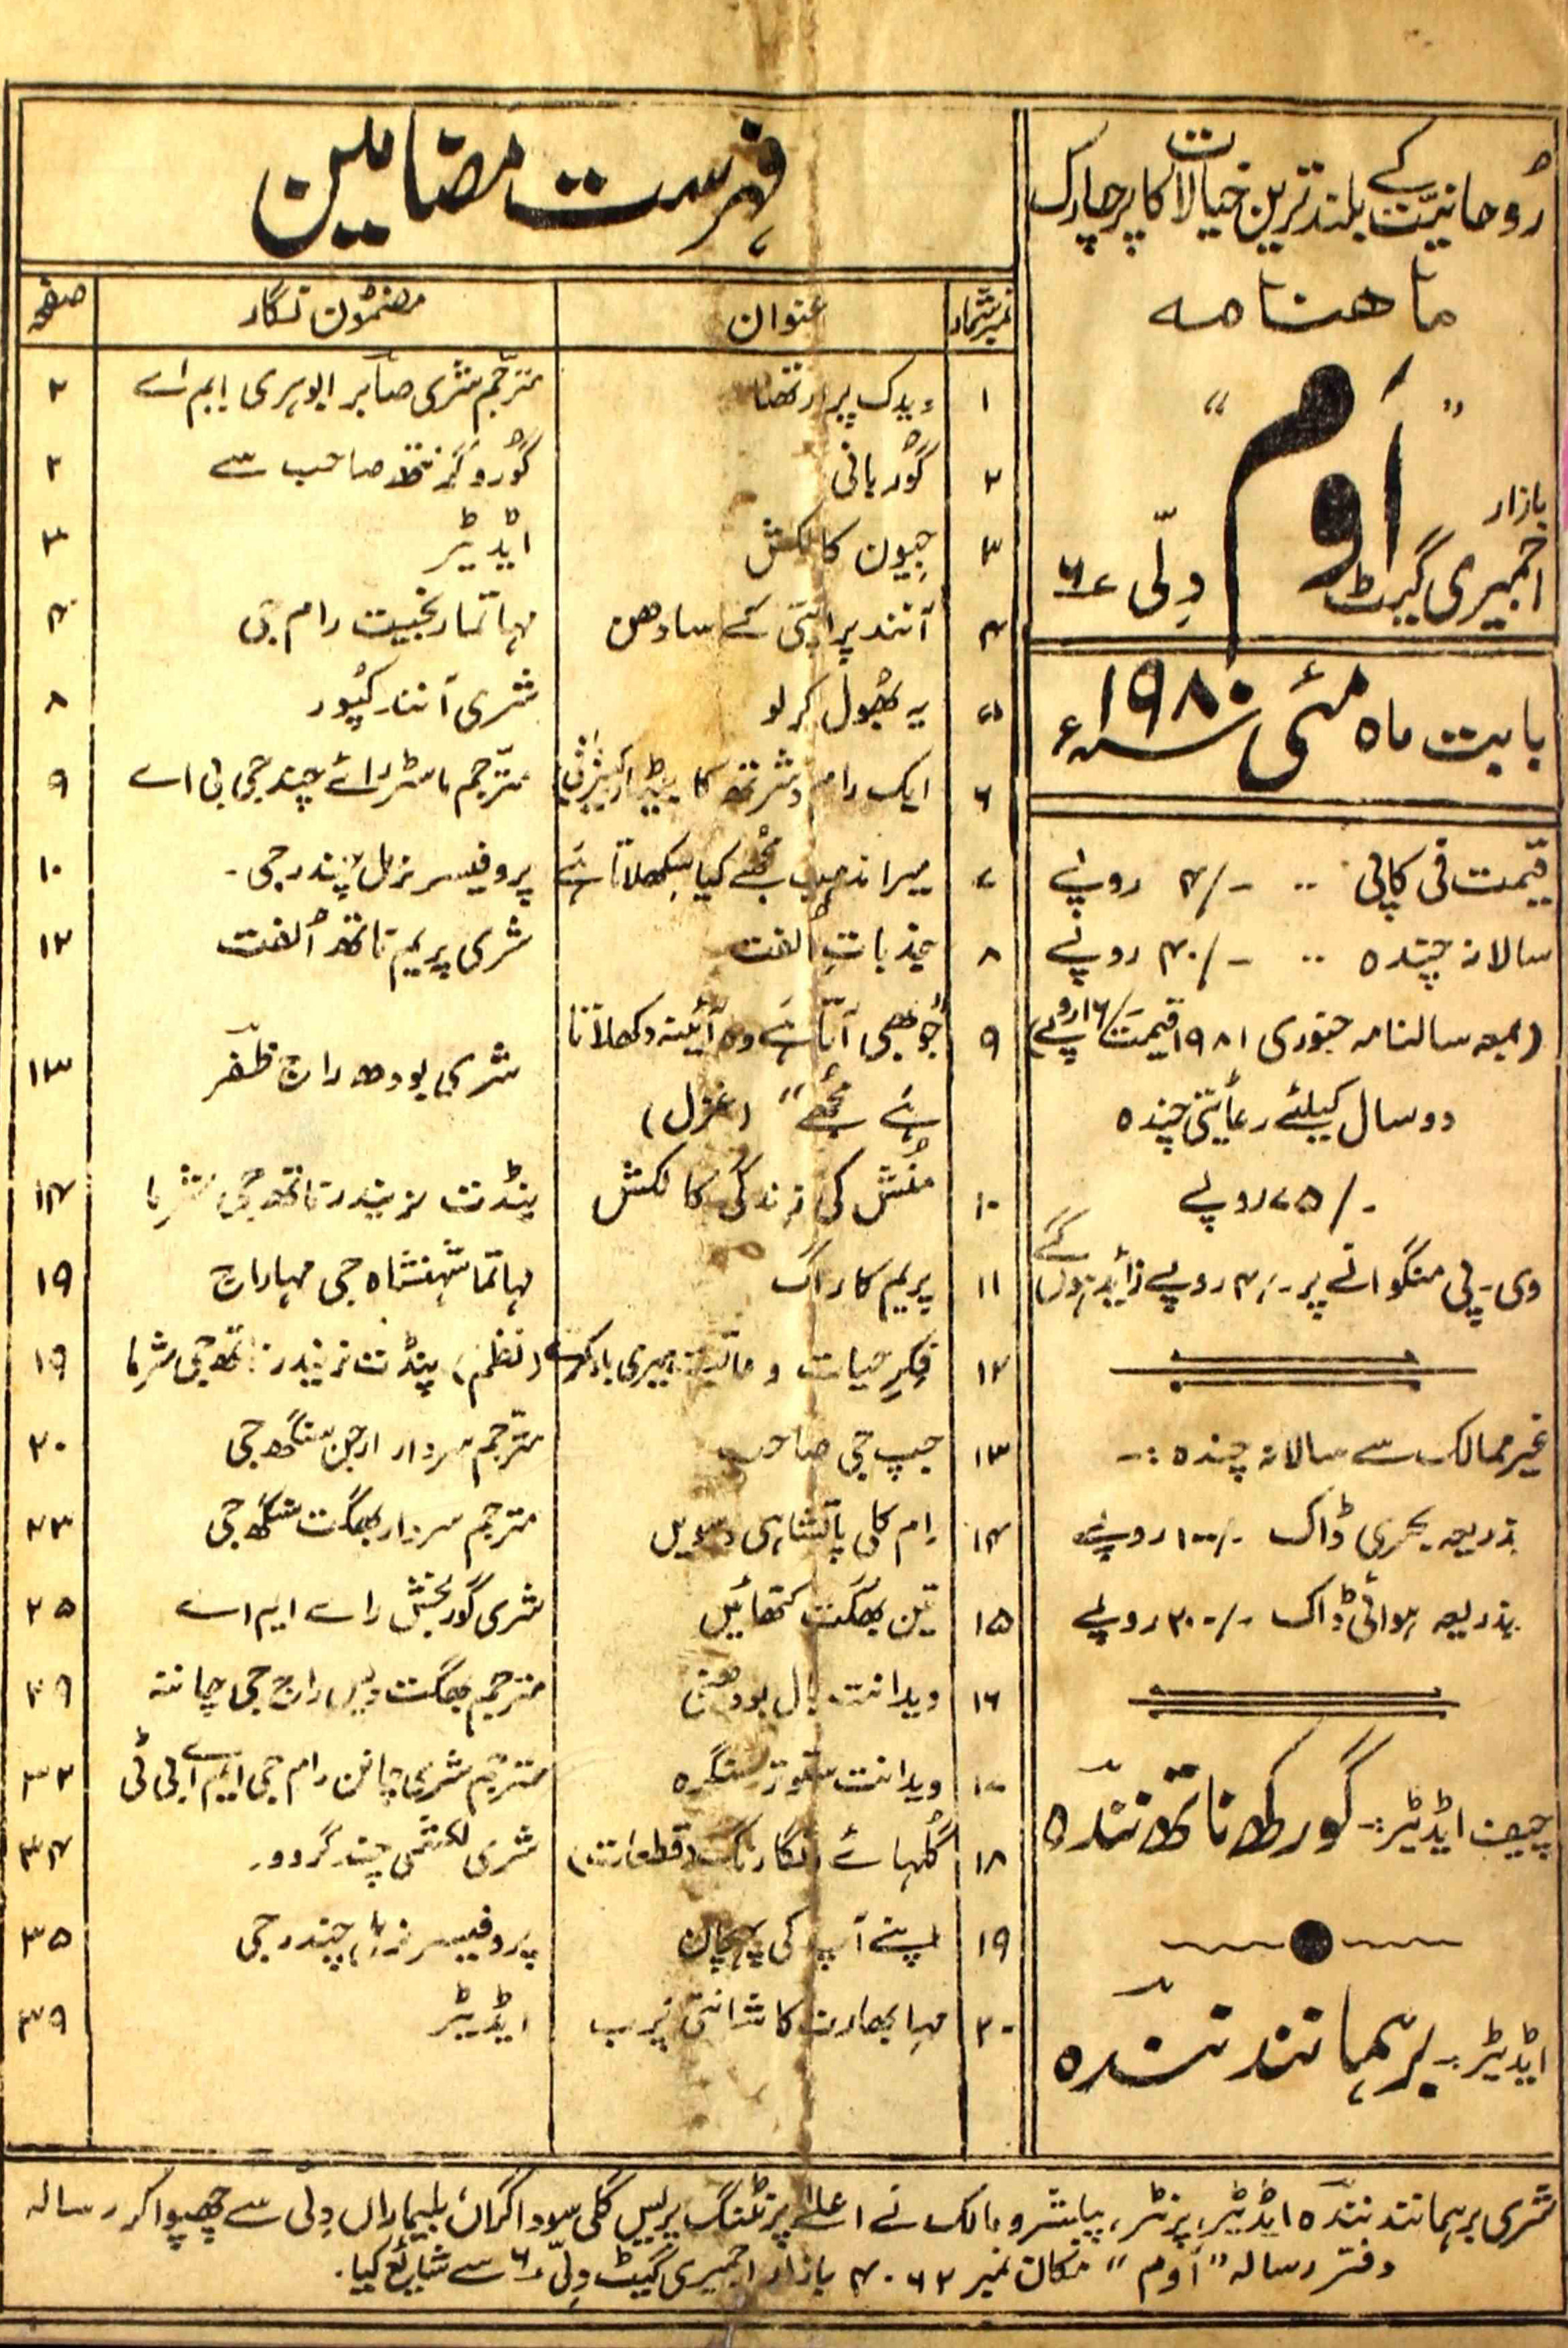 رُوحانیّت کے بلند ترین خیالات کا پرچارک
ماہنامہ
"اَوم"
بازار اجمیری گیٹ دِلّی ۶
بابت ماہ مئی ۱۹۸۰ء
قیمت فی کاپی ۔۔ ۴/- روپے
سالانہ چندہ ۔۔ ۴۰/- روپے
(بمعہ سالنامہ جنوری ۱۹۸۱ قیمت ۱۶ روپے)
دو سال کیلئے رعایتی چندہ
۷۵/- روپے
وی۔پی منگوانے پر ۴/- روپے زائد ہوں گے
غیر ممالک سے سالانہ چندہ :-
بذریعہ بحری ڈاک ۱۰۰/- روپے
بذریعہ ہوائی ڈاک ۲۰۰/- روپے
چیف ایڈیٹر:- گورکھ ناتھ نندہ
ایڈیٹر:- برہمانند نندہ
فہرست مضامین
نمبر شمار عنوان مضمُون نگار صفحہ
۱ ویدک پرارتھنا مترجّم شری صابر ابوہری ایم اے ۲
۲ گُوربانی گُورو گرنتھ صاحب سے ۲
۳ جیون کا لکش ایڈیٹر ۳
۴ آنند پراپتی کے سادھن مہاتما رنجیت رام جی
۵ یہ بھُول کر لو شری آنند کپُور ۸
۶ ایک رام دشرتھ کا بیٹا مترجّم ماسٹر رائے چند جی بی اے ۹
۷ میرا مذہب مُجھے کیا سِکھلاتا ہے پروفیسر نرمل چندر جی۔ ۱۰
۸ جذباتِ اُلفت شری پریم ناتھ اُلفت ۱۲
۹ جُو بھی آتا ہے وہ آئینہ دکھلاتا
ہے مُجھے" (غزل) شری بودھ راج ظفر ۱۳
۱۰ منُش کی زندگی کا لکش پنڈت نریندر ناتھ جی شرما ۱۴
۱۱ پریم کا راگ مہاتما شہنشاہ جی مہاراج ۱۹
۱۲ فکرِ حیات و میری یاد (نظم) پنڈت نریندر ناتھ جی شرما ۱۹
۱۳ جپ جی صاحب مترجّم سردار ارجن سنگھ جی ۲۰
۱۴ رام کلی پاتشاہی دسویں مترجم سردار بھگت سنگھ جی ۲۳
۱۵ تین بھگت کتھائیں شری گوربخش رائے ایم اے ۲۵
۱۶ ویدانت بال بودھنی مترجم بھگت دیس راج جی چاننہ ۲۹
۱۷ ویدانت ستوتر سنگرہ مترجم شری چانن رام جی ایم اے بی ٹی ۳۲
۱۸ گُلہائے رنگا رنگ (قطعات) شری لکشمی چند گروور ۳۴
۱۹ اپنے آپ کی پہچان پروفیسر نرمل چندر جی ۳۵
۲۰ مہابھارت کا شانتی پرب ایڈیٹر ۳۹
شری برہمانند نندہ ایڈیٹر، پرنٹر، پبلشر و مالک نے اعلےٰ پرنٹنگ پریس گلی سوداگراں بلیماراں دِلی سے چھپوا کر رسالہ
دفتر رسالہ "اَوم" مکان نمبر ۴۰۶۲ بازار اجمیری گیٹ دِلّی ۶ سے شائع کیا۔